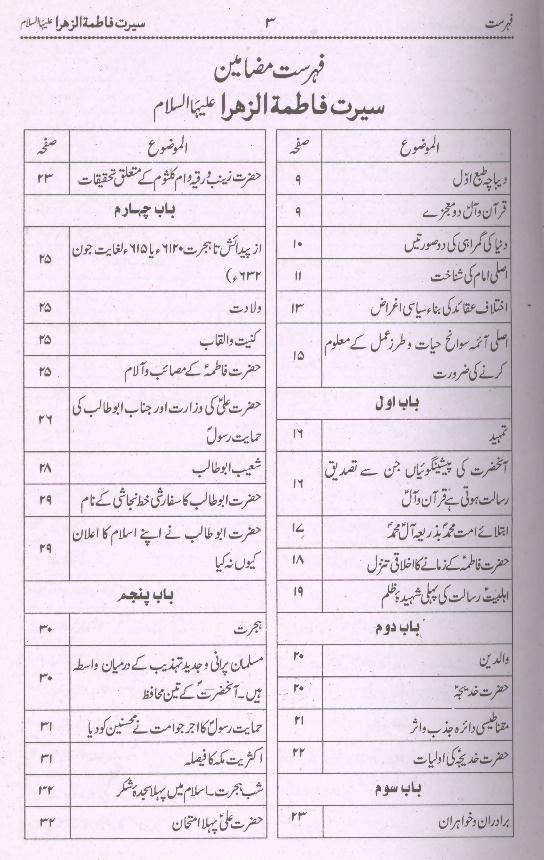 فہرست ۳ سیرت فاطمۃ الزھرا علیہا السلام
فہرست مضامین
سیرت فاطمۃ الزھرا علیہا السلام
الموضوع صفحہ
دیباچہ طبع اوّل ۹
قرآن و آلؑ دو معجزے ۹
دنیا کی گمراہی کی دو صورتیں ۱۰
اصلی امام کی شناخت ۱۱
اختلاف عقائد کی بناء سیاسی اغراض ۱۳
اصلی آئمہ سوانح حیات و طرز عمل کے معلوم
کرنے کی ضرورت ۱۵
باب اول
تمہید ۱۶
آنحضرت کی پیشینگوئیاں جن سے تصدیق
رسالت ہوتی ہے قرآن و آلؑ ۱۶
ابتلائے امت محمدؐ بذریعہ آل محمدؐ ۱۷
حضرت فاطمہؑ کے زمانے کا اخلاقی تنزل ۱۸
اہلبیتؑ رسالت کی پہلی شہیدۂ ظلم ۱۹
باب دوم
والدین ۲۰
حضرت خدیجہؑ ۲۰
مقناطیسی دائرہ جذب و اثر ۲۱
حضرت خدیجہؑ کی اولیات ۲۲
باب سوم
برادران و خواہران ۲۳
الموضوع صفحہ
حضرت زینب و رقیہ و ام کلثوم کے متعلق تحقیقات ۲۳
باب چہارم
از پیدائش تا ہجرت ۶۱۲۰ء یا ۶۱۵ء لغایت جون
۶۳۲ء) ۲۵
ولادت ۲۵
کنیت و القاب ۲۵
حضرت فاطمہؑ کے مصائب و آلام ۲۵
حضرت علیؑ کی وزارت اور جناب ابوطالب کی
حمایت رسولؐ ۲۶
شعیب ابوطالب ۲۸
حضرت ابوطالب کا سفارشی خط نجاشی کے نام ۲۹
حضرت ابوطالب نے اپنے اسلام کا اعلان
کیوں نہ کیا ۲۹
باب پنجم
ہجرت ۳۰
مسلمان پرانی و جدید تہذیب کے درمیان واسطہ
ہیں۔ آنحضرتؐ کے تین محافظ ۳۰
حمایت رسولؐ کا اجر جو امت نے محسنین کو دیا ۳۱
اکثریت مکہ کا فیصلہ ۳۱
شب ہجرت۔ اسلام میں پہلا سجدۂ شکر ۳۲
حضرت علیؑ پہلا امتحان ۳۲